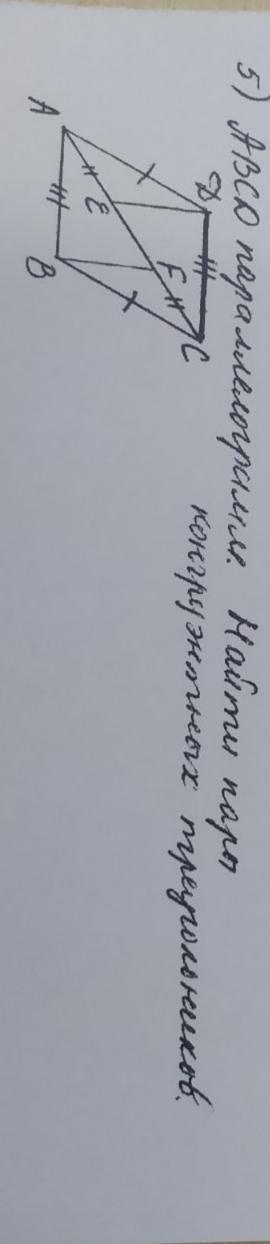 5) ABCD параллелограмм. Найти пары
конгруэнтных треугольников.
D
C
E
F
A
B